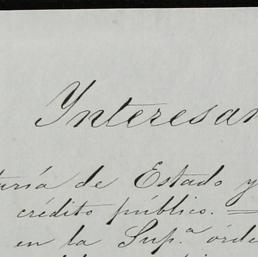 Interesan
turía de Estado y
crédito público. =
en la Sup.ª órde